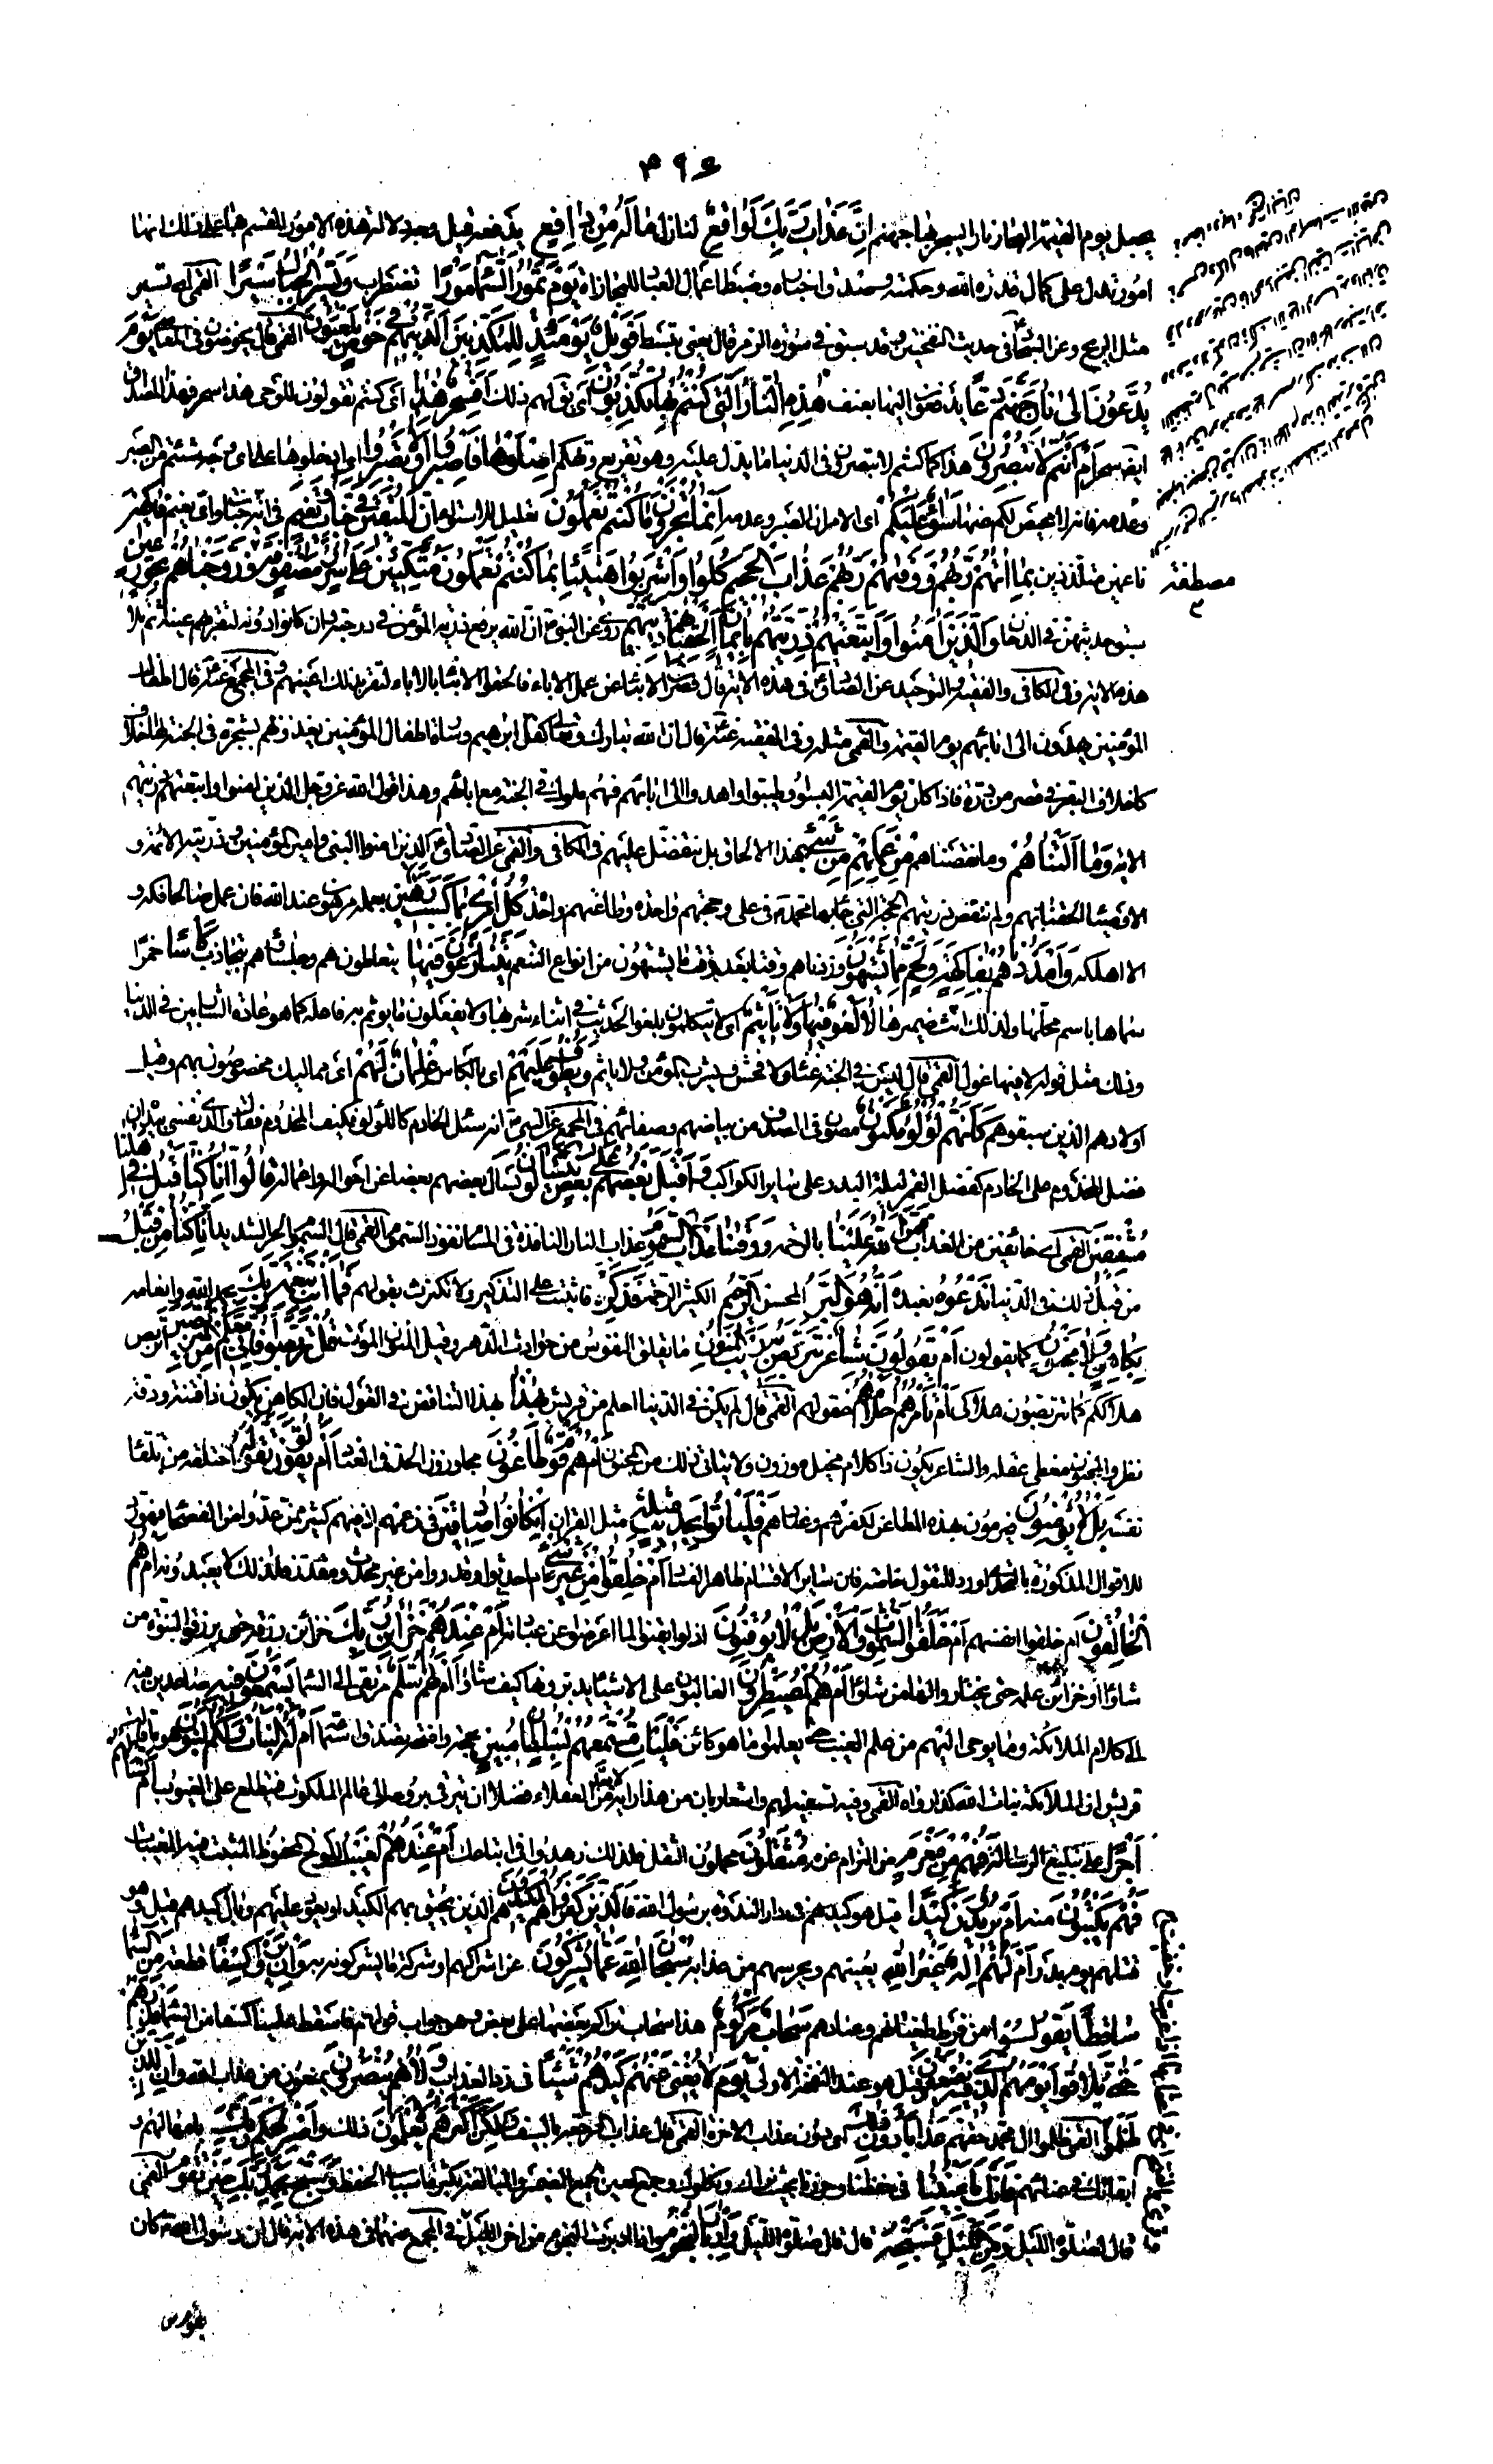 ٣٩٤
يجعل يوم القيمة البحار نارا يسجر بها جهنم إِنَّ عَذَابَ رَبِّكَ لَوَاقِعٌ لنازل مَا لَهُ مِنْ دَافِعٍ يدفعه قيل وجه دلالة هذه الامور المقسم بها على ذلك انها
امور تدل على كمال قدرة الله وحكمته وصدق اخباره وضبط اعمال العباد للمجازاة يَوْمَ تَمُورُ السَّمَاءُ مَوْرًا تضطرب وَتَسِيرُ الْجِبَالُ سَيْرًا القمى اى تسير
مثل الريح وعن السجاد فى حديث النفختين وقد سبق فى سورة الزمر قال يعنى تبسط فَوَيْلٌ يَوْمَئِذٍ لِلْمُكَذِّبِينَ الَّذِينَ هُمْ فِي خَوْضٍ يَلْعَبُونَ القمى قال يخوضون فى المعاصى يَوْمَ
يُدَعُّونَ إِلَى نَارِ جَهَنَّمَ دَعًّا يدفعون اليها بعنف هَذِهِ النَّارُ الَّتِي كُنْتُمْ بِهَا تُكَذِّبُونَ اى يقال لهم ذلك أَفَسِحْرٌ هَذَا اى كنتم تقولون للوحى هذا سحر فهذا المصداق
ايضا سحر أَمْ أَنْتُمْ لَا تُبْصِرُونَ هذا كما كنتم لا تبصرون فى الدنيا ما يدل عليه وهو تقريع وتهكم اصْلَوْهَا فَاصْبِرُوا أَوْ لَا تَصْبِرُوا اى ادخلوها على اى وجه شئتم من الصبر
وعدمه فانه لا محيص لكم عنها سَوَاءٌ عَلَيْكُمْ اى الامران الصبر وعدمه إِنَّمَا تُجْزَوْنَ مَا كُنْتُمْ تَعْمَلُونَ تعليل للاستواء إِنَّ الْمُتَّقِينَ فِي جَنَّاتٍ وَنَعِيمٍ فى اية جنات واى نعيم فَاكِهِينَ
ناعمين متلذذين بِمَا آتَاهُمْ رَبُّهُمْ وَوَقَاهُمْ رَبُّهُمْ عَذَابَ الْجَحِيمِ كُلُوا وَاشْرَبُوا هَنِيئًا بِمَا كُنْتُمْ تَعْمَلُونَ مُتَّكِئِينَ عَلَى سُرُرٍ مَصْفُوفَةٍ وَزَوَّجْنَاهُمْ بِحُورٍ عِينٍ
مصطفة
سبق حديثهن فى الدخان وَالَّذِينَ آمَنُوا وَاتَّبَعَتْهُمْ ذُرِّيَّتُهُمْ بِإِيمَانٍ أَلْحَقْنَا بِهِمْ ذُرِّيَّتَهُمْ روى عن النبى ان الله يرفع ذرية المؤمن فى درجته وان كانوا دونه لتقر بهم عينه ثم تلا
هذه الاية وفى الكافى والفقيه والتوحيد عن الصادق فى هذه الاية قال قصرت الابناء عن عمل الاباء فالحقوا الابناء بالاباء لتقر بذلك اعينهم وفى المجمع عنه قال اطفال
المؤمنين يهدون الى ابائهم يوم القيمة والقمى مثله وفى الفقيه عنه قال ان الله تبارك وتعالى كفل ابرهيم وسارة اطفال المؤمنين يغذونهم بشجرة فى الجنة لها اخلاف
كاخلاف البقر فى قصر من درة فاذا كان يوم القيمة البسوا وطيبوا واهدوا الى ابائهم فهم ملوك فى الجنة مع ابائهم وهذا قول الله عز وجل الذين امنوا واتبعتهم ذريتهم
الاية وَمَا أَلَتْنَاهُمْ وما نقصناهم مِنْ عَمَلِهِمْ مِنْ شَيْءٍ بهذا الالحاق بل نتفضل عليهم فى الكافى والقمى عن الصادق الذين امنوا النبى وامير المؤمنين وذريته الائمة و
الاوصياء الحقنا بهم ولم ننقص ذريتهم الحجة التى جاء بها محمد فى على وحجتهم واحدة وطاعتهم واحدة كُلُّ امْرِئٍ بِمَا كَسَبَ رَهِينٌ بعمله مرهون عند الله فان عمل صالحا فكه و
الا اهلكه وَأَمْدَدْنَاهُمْ بِفَاكِهَةٍ وَلَحْمٍ مِمَّا يَشْتَهُونَ وزدناهم وقتا بعد وقت ما يشتهون من انواع التنعم يَتَنَازَعُونَ فِيهَا يتعاطون هم وجلساؤهم بتجاذب كَأْسًا خمرا
سماها باسم محلها ولذلك انث ضميرها لَا لَغْوٌ فِيهَا وَلَا تَأْثِيمٌ اى لا يتكلمون بلغو الحديث فى اثناء شربها ولا يفعلون ما يؤثم به فاعله كما هو عادة الشاربين فى الدنيا
وذلك مثل قوله لا فيها غول القمى قال ليس فى الجنة غناء ولا فحش ويشرب المؤمن ولا ياثم وَيَطُوفُ عَلَيْهِمْ اى بالكاس غِلْمَانٌ لَهُمْ اى مماليك مخصوصون بهم وقيل
اولادهم الذين سبقوهم كَأَنَّهُمْ لُؤْلُؤٌ مَكْنُونٌ مصون فى الصدف من بياضهم وصفائهم فى المجمع عن النبى انه سئل الخادم كاللؤلؤ فكيف المخدوم فقال والذى نفسى بيده ان
فضل المخدوم على الخادم كفضل القمر ليلة البدر على سائر الكواكب وَأَقْبَلَ بَعْضُهُمْ عَلَى بَعْضٍ يَتَسَاءَلُونَ يسأل بعضهم بعضا عن احواله واعماله قَالُوا إِنَّا كُنَّا قَبْلُ فِي أَهْلِنَا
مُشْفِقِينَ القمى اى خائفين من العذاب فَمَنَّ اللَّهُ عَلَيْنَا بالرحمة وَوَقَانَا عَذَابَ السَّمُومِ عذاب النار النافذة فى المسام نفوذ السموم القمى قال السموم الحر الشديد إِنَّا كُنَّا مِنْ قَبْلُ
من قبل ذلك فى الدنيا نَدْعُوهُ نعبده إِنَّهُ هُوَ الْبَرُّ المحسن الرَّحِيمُ الكثير الرحمة فَذَكِّرْ فاثبت على التذكير ولا تكترث بقولهم فَمَا أَنْتَ بِنِعْمَةِ رَبِّكَ بحمد الله وانعامه
بِكَاهِنٍ وَلَا مَجْنُونٍ كما يقولون أَمْ يَقُولُونَ شَاعِرٌ نَتَرَبَّصُ بِهِ رَيْبَ الْمَنُونِ ما يقلق النفوس من حوادث الدهر وقيل المنون الموت قُلْ تَرَبَّصُوا فَإِنِّي مَعَكُمْ مِنَ الْمُتَرَبِّصِينَ اتربص
هلاككم كما تتربصون هلاكى أَمْ تَأْمُرُهُمْ أَحْلَامُهُمْ عقولهم القمى قال لم يكن فى الدنيا احلم من قريش بِهَذَا بهذا التناقض فى القول فان الكاهن يكون ذا فطنة ودقة
نظر والمجنون مغطى عقله والشاعر يكون ذا كلام مخيل موزون ولا يتاتى ذلك من المجنون أَمْ هُمْ قَوْمٌ طَاغُونَ مجاوزون الحد فى العناد أَمْ يَقُولُونَ تَقَوَّلَهُ اختلقه من تلقاء
نفسه بَلْ لَا يُؤْمِنُونَ فيرمون بهذه المطاعن لكفرهم وعنادهم فَلْيَأْتُوا بِحَدِيثٍ مِثْلِهِ مثل القران إِنْ كَانُوا صَادِقِينَ فى زعمهم اذ فيهم كثير ممن عدوا من الفصحاء فهو رد
للاقوال المذكورة بالتحدى او رد للتقول خاصة فان سائر الاقسام ظاهر الفساد أَمْ خُلِقُوا مِنْ غَيْرِ شَيْءٍ ام احدثوا وقدروا من غير محدث ومقدر فلذلك لا يعبدونه أَمْ هُمُ
الْخَالِقُونَ ام خلقوا انفسهم أَمْ خَلَقُوا السَّمَوَاتِ وَالْأَرْضَ بَلْ لَا يُوقِنُونَ اذ لو ايقنوا لما اعرضوا عن عبادته أَمْ عِنْدَهُمْ خَزَائِنُ رَبِّكَ خزائن رزقه حتى يرزقوا النبوة من
شاؤا او خزائن علمه حتى يختاروا لها من شاؤا أَمْ هُمُ الْمُصَيْطِرُونَ الغالبون على الاشياء يدبرونها كيف شاؤا أَمْ لَهُمْ سُلَّمٌ مرتقى الى السماء يَسْتَمِعُونَ فِيهِ صاعدين فيه
الى كلام الملائكة وما يوحى اليهم من علم الغيب حتى يعلموا ما هو كائن فَلْيَأْتِ مُسْتَمِعُهُمْ بِسُلْطَانٍ مُبِينٍ بحجة واضحة تصدق استماعه أَمْ لَهُ الْبَنَاتُ وَلَكُمُ الْبَنُونَ
قريش ان الملائكة بنات الله كذا رواه القمى وفيه تسفيه لهم واشعار بان من هذا رايه لا يعد من العقلاء فضلا ان يترقى بروحه الى عالم الملكوت فيطلع على الغيوب أَمْ تَسْأَلُهُمْ
أَجْرًا على تبليغ الرسالة فَهُمْ مِنْ مَغْرَمٍ من التزام غرم مُثْقَلُونَ محملون الثقل فلذلك زهدوا فى اتباعك أَمْ عِنْدَهُمُ الْغَيْبُ اللوح المحفوظ المثبت فيه المغيبات
فَهُمْ يَكْتُبُونَ منه أَمْ يُرِيدُونَ كَيْدًا قيل هو كيدهم فى دار الندوة برسول الله فَالَّذِينَ كَفَرُوا هُمُ الْمَكِيدُونَ هم الذين يحيق بهم الكيد او يعود عليهم وبال كيدهم قيل وهو
قتلهم يوم بدر أَمْ لَهُمْ إِلَهٌ غَيْرُ اللَّهِ يعينهم ويحرسهم من عذابه سُبْحَانَ اللَّهِ عَمَّا يُشْرِكُونَ عن اشراكهم او شركة ما يشركونه به وَإِنْ يَرَوْا كِسْفًا قطعة مِنَ السَّمَاءِ
سَاقِطًا يَقُولُوا من فرط طغيانهم وعنادهم سَحَابٌ مَرْكُومٌ هذا سحاب تراكم بعضها على بعض وهو جواب قولهم فاسقط علينا كسفا من السماء فَذَرْهُمْ
حَتَّى يُلَاقُوا يَوْمَهُمُ الَّذِي فِيهِ يُصْعَقُونَ قيل هو عند النفخة الاولى يَوْمَ لَا يُغْنِي عَنْهُمْ كَيْدُهُمْ شَيْئًا فى رد العذاب وَلَا هُمْ يُنْصَرُونَ يمنعون من عذاب الله وَإِنَّ لِلَّذِينَ
ظَلَمُوا القمى ظلموا ال محمد حقهم عَذَابًا دُونَ ذَلِكَ اى دون عذاب الاخرة القمى قال عذاب الرجعة بالسيف وَلَكِنَّ أَكْثَرَهُمْ لَا يَعْلَمُونَ ذلك وَاصْبِرْ لِحُكْمِ رَبِّكَ بامهالهم و
ابقائك فى عنائهم فَإِنَّكَ بِأَعْيُنِنَا فى حفظنا وحرزنا بحيث نراك ونكلؤك وجمع العين لجمع الضمير والمبالغة بكثرة اسباب الحفظ وَسَبِّحْ بِحَمْدِ رَبِّكَ حِينَ تَقُومُ القمى
قال لصلوة الليل وَمِنَ اللَّيْلِ فَسَبِّحْهُ قال قال صلوة الليل وَإِدْبَارَ النُّجُومِ واذا ادبرت النجوم من اخر الليل فى المجمع عنهما فى هذه الاية قال ان رسول الله كان
يقوم من